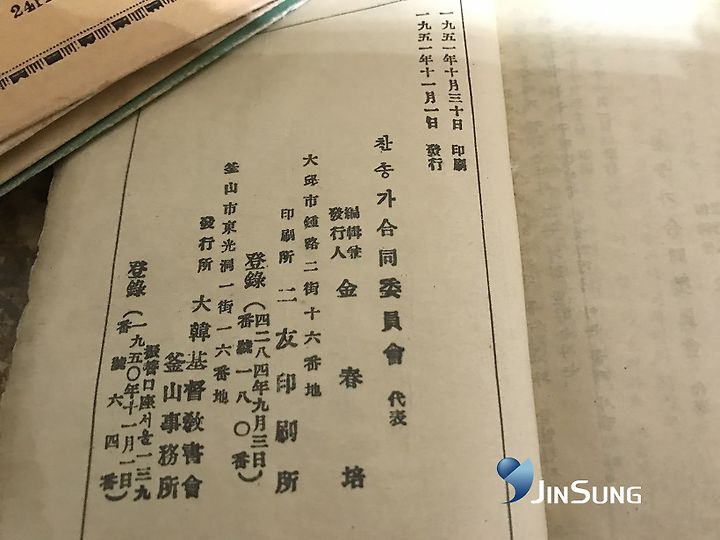 一九五一年十月三十日 印刷
一九五一年十一月一日 發行
찬송가合同委員會 代表
編輯兼
發行人 金春培
大邱市鍾路二街十六番地
印刷所 二友印刷所
登錄(四二八四年九月三日
番號一八〇番)
釜山市東光洞一街一六番地
發行所 大韓基督敎書會
釜山事務所
振替口座서울一三九
登錄(一九五〇年十一月一日
番號六四番)
JINSUNG